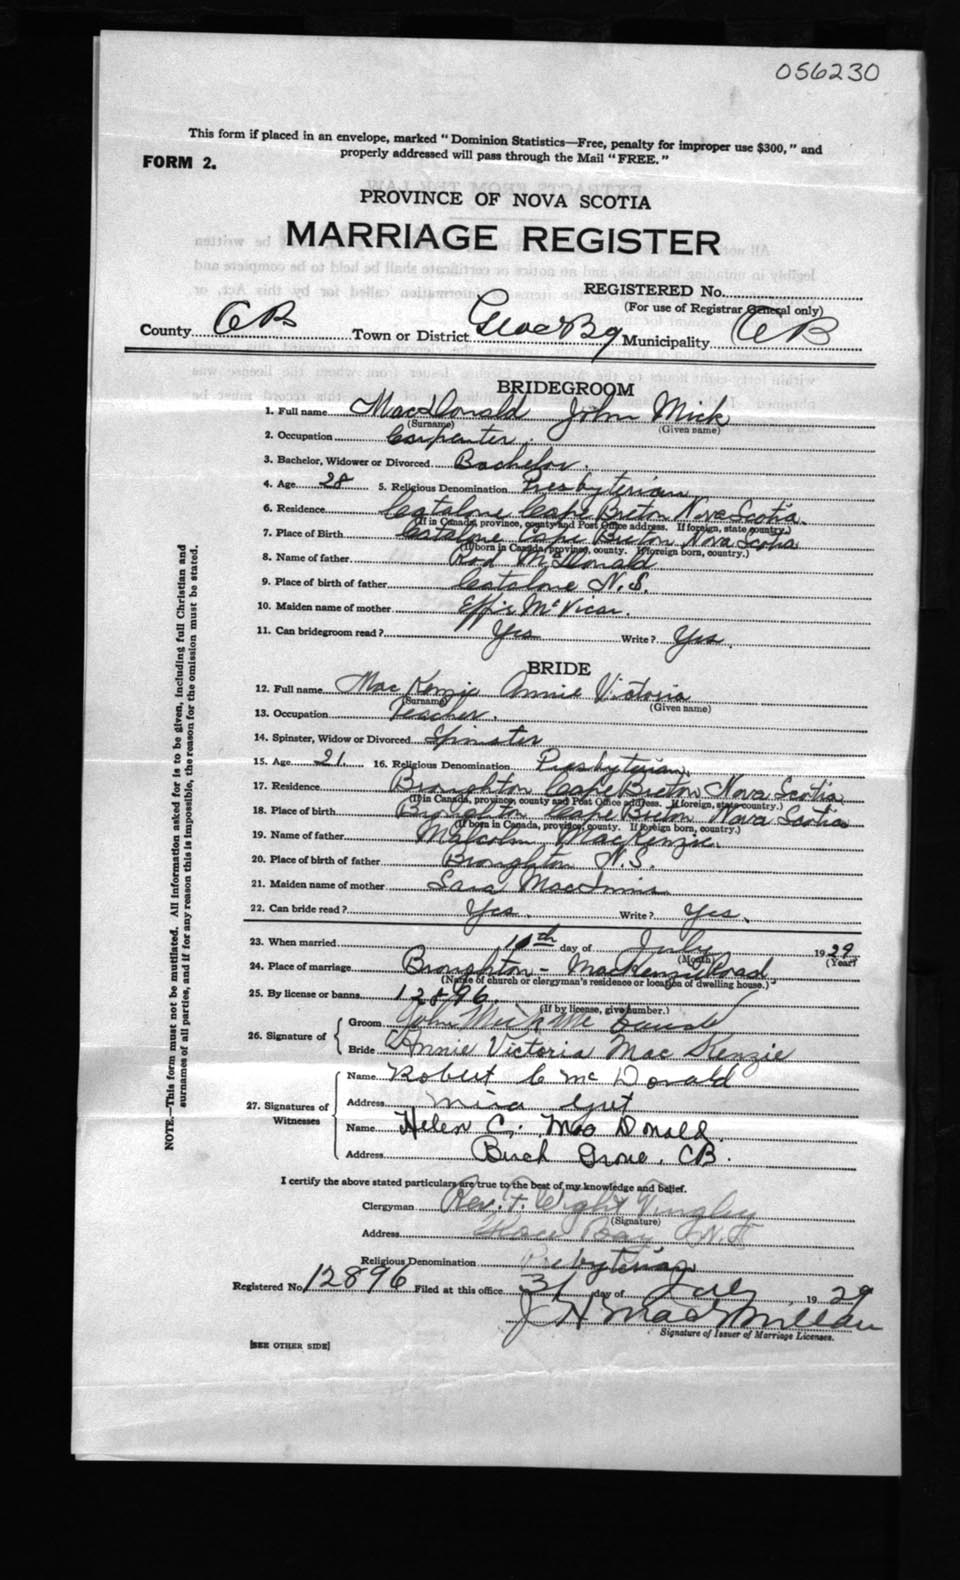 056230
This form if placed in an envelope, marked "Dominion Statistics—Free, penalty for improper use $300," and
properly addressed will pass through the Mail "FREE."
FORM 2.
PROVINCE OF NOVA SCOTIA
MARRIAGE REGISTER
REGISTERED No.
(For use of Registrar General only)
County CB Town or District Glace By Municipality CB
BRIDEGROOM
1. Full name MacDonald John Mick
(Surname) (Given name)
2. Occupation Carpenter.
3. Bachelor, Widower or Divorced Bachelor.
4. Age 28 5. Religious Denomination Presbyterian
6. Residence Catalone Cape Breton Nova Scotia.
(If in Canada, province, county and Post Office address. If foreign, state country.)
7. Place of Birth Catalone Cape Breton Nova Scotia
(If born in Canada, province, county. If foreign born, country.)
8. Name of father Rod McDonald
9. Place of birth of father Catalone N.S.
10. Maiden name of mother Effie McVicar.
11. Can bridegroom read? Yes Write? Yes.
BRIDE
12. Full name MacKenzie Annie Victoria
(Surname) (Given name)
13. Occupation Teacher.
14. Spinster, Widow or Divorced Spinster
15. Age 21. 16. Religious Denomination Presbyterian.
17. Residence Broughton Cape Breton Nova Scotia
(If in Canada, province, county and Post Office address. If foreign, state country.)
18. Place of birth Broughton Cape Breton Nova Scotia
(If born in Canada, province, county. If foreign born, country.)
19. Name of father Malcolm MacKenzie.
20. Place of birth of father Broughton N.S.
21. Maiden name of mother Sara MacInnis
22. Can bride read? Yes. Write? Yes.
23. When married 10th day of July 1929
(Month) (Year)
24. Place of marriage Broughton - MacKenzie Road
(Name of church or clergyman's residence or location of dwelling house.)
25. By license or banns 12896.
(If by license, give number.)
26. Signature of
Groom John Mick Mc
Bride Annie Victoria MacKenzie
27. Signatures of Witnesses
Name Robert C McDonald
Address Mira Gut
Name Helen C. MacDonald.
Address Birch Grove, CB.
I certify the above stated particulars are true to the best of my knowledge and belief.
Clergyman Rev. F.
(Signature)
Address Glace Bay N.S
Religious Denomination Presbyterian
Registered No. 12896 Filed at this office 31 day of July 1929
J H MacMillan
Signature of Issuer of Marriage Licenses.
[SEE OTHER SIDE]
NOTE.—This form must not be mutilated. All information asked for is to be given, including full Christian and
surnames of all parties, and if for any reason this is impossible, the reason for the omission must be stated.